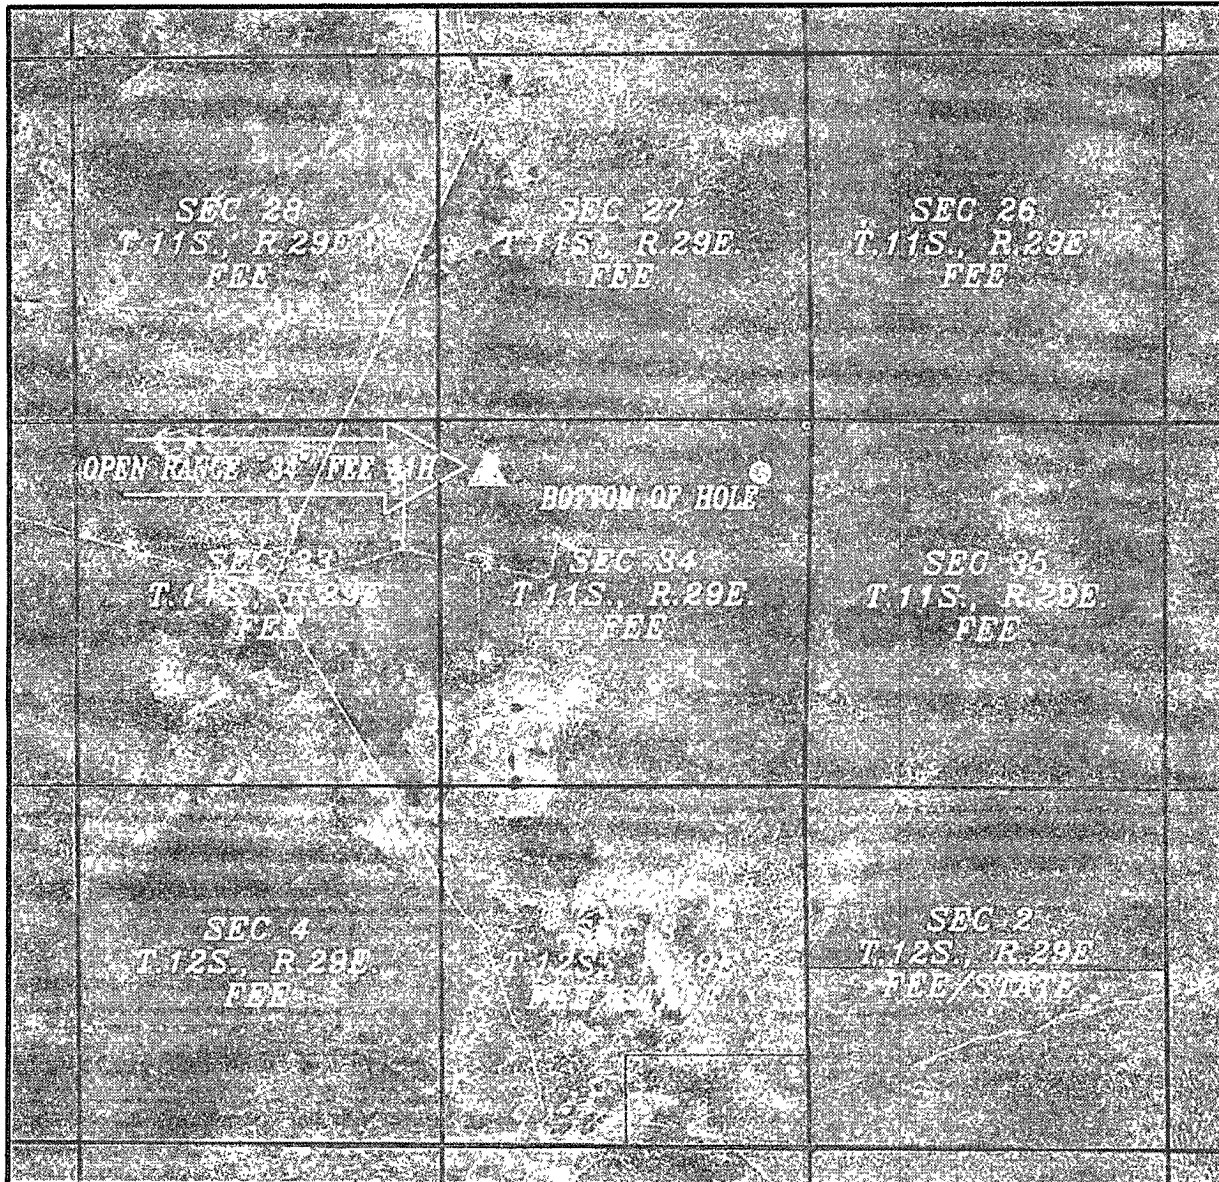 SEC 28
T.11S., R.29E.
FEE
SEC 27
T.11S., R.29E.
FEE
SEC 26
T.11S., R.29E.
FEE
OPEN RANGE "34" FEE #1H
BOTTOM OF HOLE
SEC 33
T.11S., R.29E.
FEE
SEC 34
T.11S., R.29E.
FEE
SEC 35
T.11S., R.29E.
FEE
SEC 4
T.12S., R.29E.
FEE
SEC
T.12S., R.29E.
SEC 2
T.12S., R.29E.
FEE/STATE